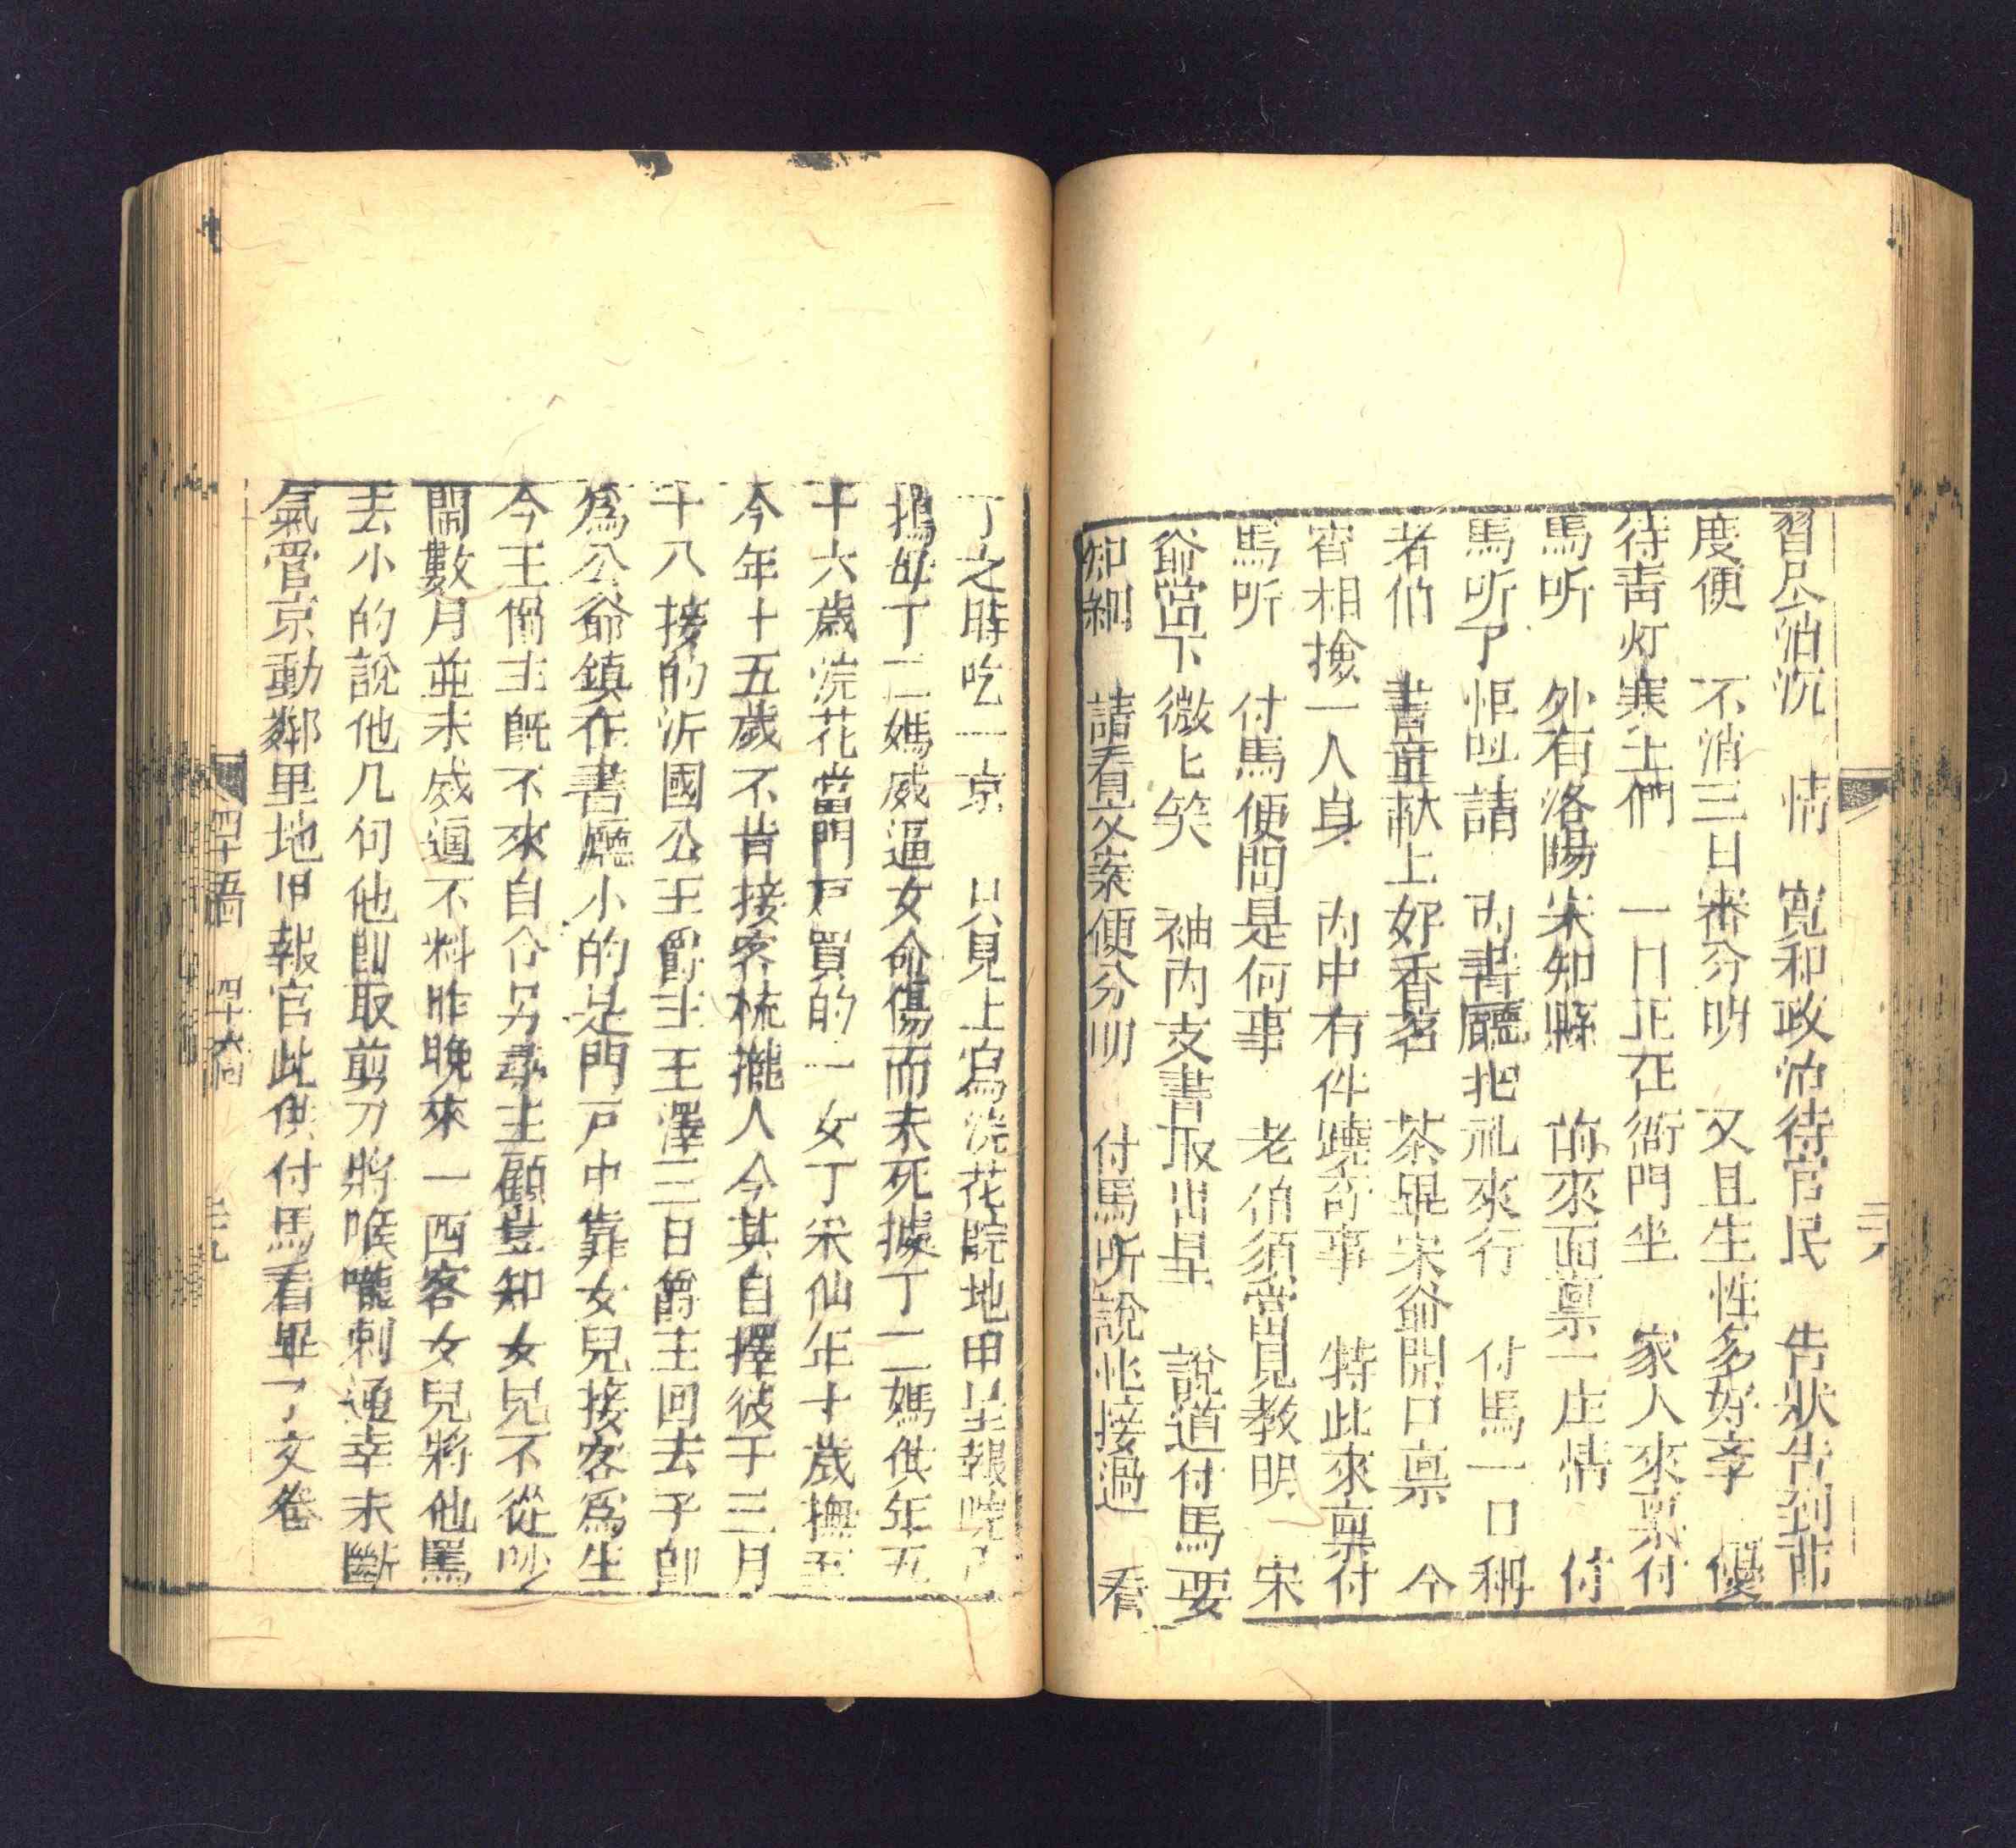 情　寬和政治待官民　告狀告到
度便　不消三日審分明　又且生性多好　優
待青灯寒士們　一日正在衙門坐　家人來稟付
馬听　外有洛陽宋知縣　前來面禀一庄情　付
馬听了　請　內書廳把礼來行　付馬一口稱
者伯　書童献上好香茗　茶畢宋爺開口禀　今
宵相撿一人身　內中有件蹺奇事　特此來禀付
馬听　付馬便問是何事　老伯須當見教明　宋
爺當下微匕笑　袖內文書取出呈　說道付馬要
知細　請看文案便分明　付馬听說忙接過　看
了之時吃一京　只見上寫浣花院地甲呈報
搗母丁二媽威逼女命傷而未死據丁二媽供年五
十六歲浣花當門戶買的一女丁采仙年十歲撫至
今年十五歲不肯接客梳攏人今其自擇彼于三月
十八接的沂國公王爵主王澤三日爵主回去子即
為公爺鎮在書廳小的是門戶中靠女兒接客為生
今王爵主既不來自合另尋主顧豈知女兒不從吵
鬧數月並未威逼不料昨晚來一西客女兒將他罵
去小的說他几句他即取剪刀將喉嚨刺通幸未斷
氣管京動鄰里地甲報官此供付馬看畢了文卷